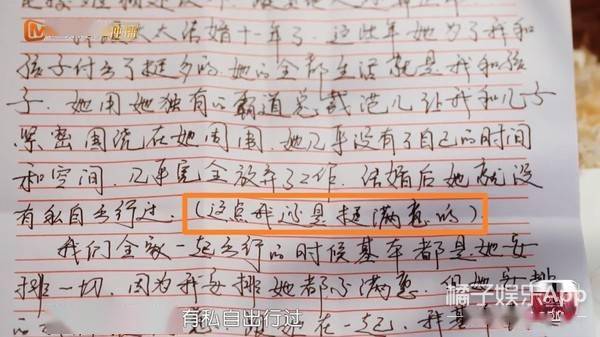 太太结婚十一年了 这些年她为了我和
孩子付出了挺多的,她的全部生活就是我和孩
子.她用她独有的霸道总裁范儿让我和儿子
紧密围绕在她周围.她几乎没有了自己的时间
和空间.几乎完全放弃了工作.结婚后她就没
有私自出行过.(这点我还是挺满意的).
我们全家一起出行的时候基本都是她安
排一切.因为我安排她都不满意.但她安排
在一起.我基本
有私自出行过
橘子娱乐App